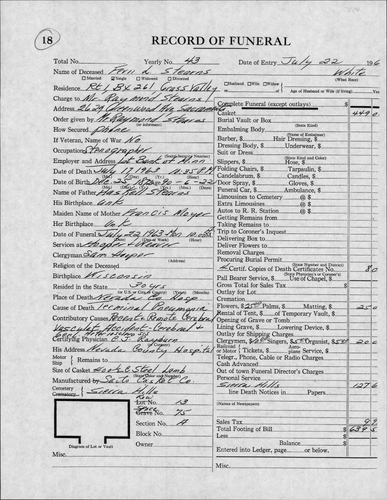 18
RECORD OF FUNERAL
Total No. Yearly No. 43 Date of Entry July 22 196
Name of Deceased Fern L. Stevens White
Married Single Widowed Divorced Husband Wife Widow (What Race)
Residence Rt 1 Box 261 Grass Valley Age of Husband or Wife (if living)
Charge to Mr Raymond Stevens
Address 2629 Greenwood Ave Sacramento
Order given by Mr Raymond Stevens
How Secured Phone
If Veteran, Name of War No
Occupation Stenographer
Employer and Address
Date of Death July 19 1963 10:35 P.M.
Date of Birth Dec 25
Name of Father Stevens
His Birthplace Unk
Maiden Name of Mother Francis Moyer
Her Birthplace Unk
Date of Funeral July 22 1963 Mon 10:00
Services at Chapel
Clergyman Sam Hooper
Religion of the Deceased
Birthplace Wisconsin
Resided in the State 30 yrs
Place of Death Nevada Co Hosp
Cause of Death Terminal Pneumonia
Contributory Causes Cerebral
Vascular Accident - Cerebral &
Certifying Physician C. J. Rayburn
His Address Nevada County Hospital
Motor Remains to
Ship
Size of Casket Steel Lamb
Manufactured by Casket Co
Cemetery
Crematory Sierra Hills
Lot No. 13
Grave No. 75
Section No. A
Block No.
Owner
Diagram of Lot or Vault
Misc.
Complete Funeral (except outlays) $
Casket 449 0
Burial Vault or Box
(State Kind)
Embalming Body
(Name of Embalmer)
Barber, $ Hair Dressing, $
Dressing Body, $ Underwear, $
Suit or Dress
(State Kind and Color)
Slippers, $ Hose, $
Folding Chairs, $ Tarpaulin, $
Candelabrum, $ Candles, $
Door Spray, $ Gloves, $
Funeral Car, $ Ambulance, $
Limousines to Cemetery @ $
Extra Limousines @ $
Autos to R. R. Station @ $
Getting Remains from
Taking Remains to
Trip to Coroner's Inquest
Delivering Box to
Deliver Flowers to
Removal Charges
Procuring Burial Permit
Certif. Copies of Death Certificate No. 8 0
Pall Bearer Service, $ Use of Chapel, $
Gross Total for Sales Tax $
Outlay for Lot
Cremation
Flowers, $25.00 Palms, $ Matting, $ 25 0
Rental of Tent, $ of Temporary Vault, $
Opening of Grave or Tomb
Lining Grave, $ Lowering Device, $
Outlay for Shipping Charges
Clergymen, $ Singers, $ Organist, $ 20 0
Railroad or Motor Tickets, $ Aero-plane Service, $
Telegr., Phone, Cable or Radio Charges
Cash Advanced
Out of town Funeral Director's Charges
Personal Service
Sierra Hills 127 6
line Death Notices in Papers
(Names of Newspapers)
Sales Tax 9 9
Total Footing of Bill $ 639 5
Less $
Balance $
Entered into Ledger, page or below.
Misc.